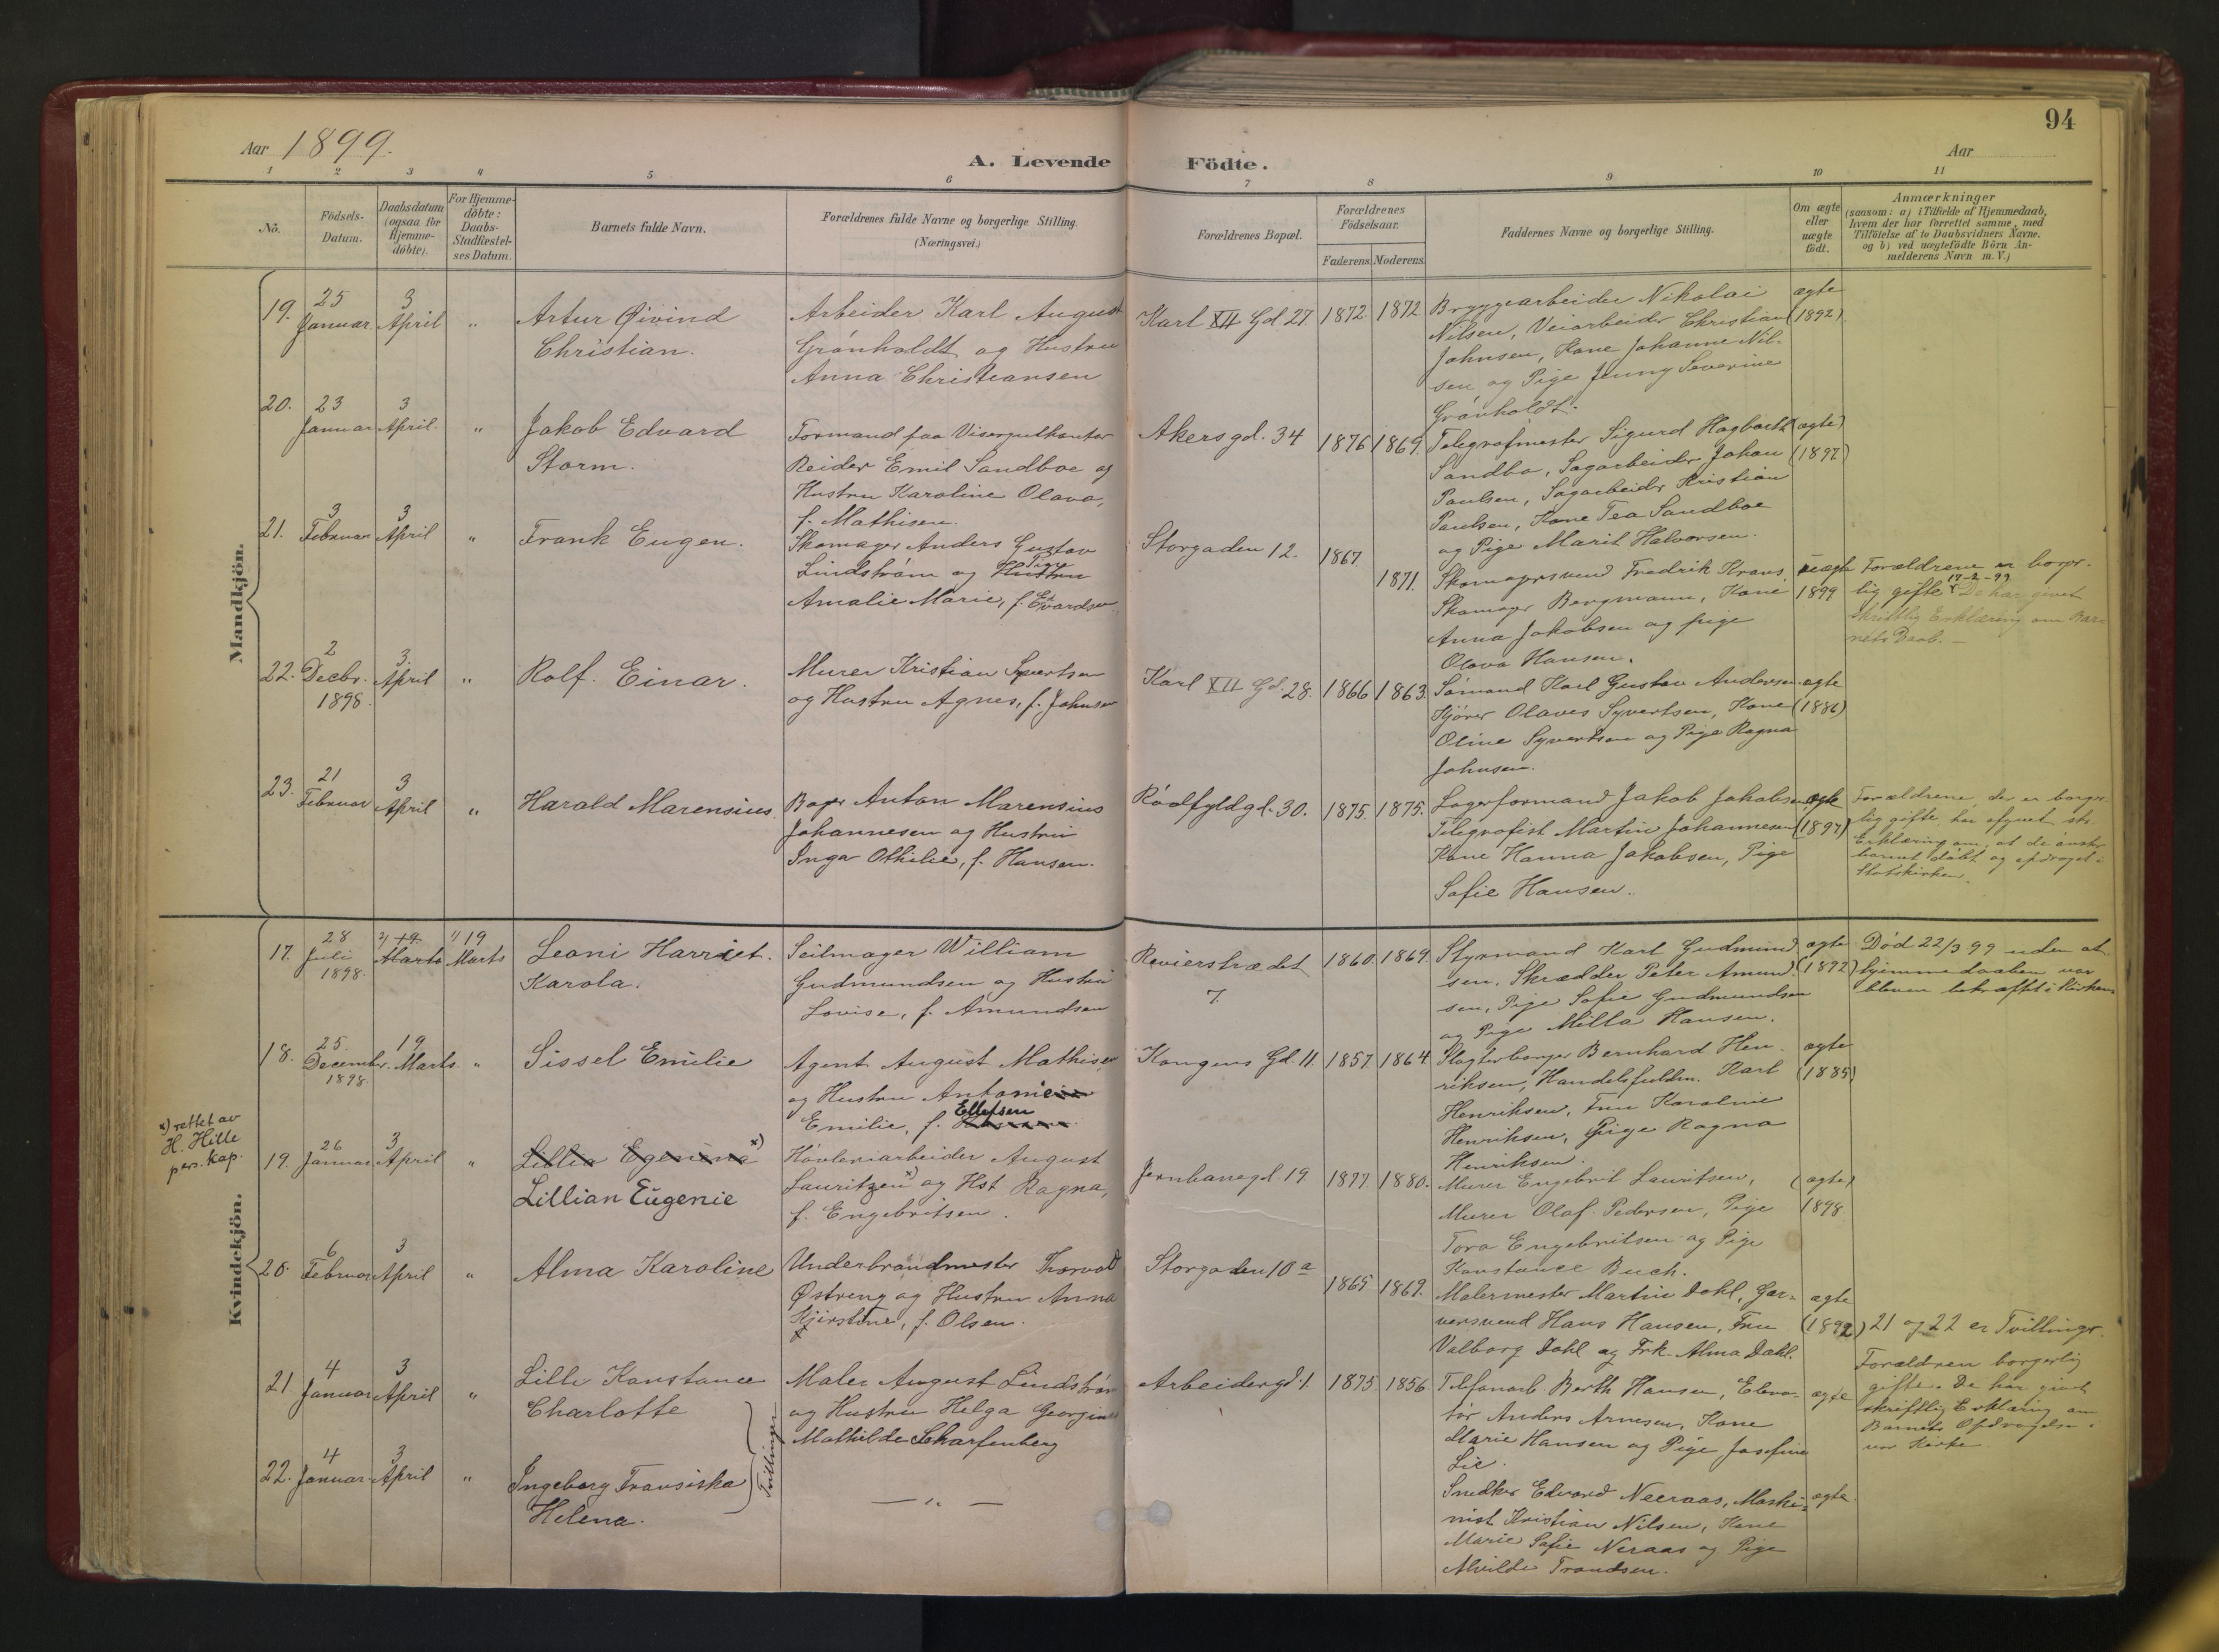 94
Aar 1899.
A. Levende Födte.
Aar
1 2 3 4 5 6 7 8 9 10 11
No.
Födsels-
Datum.
Daabsdatum
(ogsaa for
Hjemme-
döbte).
For Hjemme-
döbte:
Daabs-
Stadfæstel-
ses Datum.
Barnets fulde Navn.
Forældrenes fulde Navne og borgerlige Stilling.
(Næringsvei.)
Forældrenes Bopæl.
Forældrenes
Födselsaar.
Faderens. Moderens.
Faddernes Navne og borgerlige Stilling.
Om ægte
eller
uægte
födt.
Anmærkninger
(saasom: a) i Tilfælde af Hjemmedaab,
hvem der har forrettet samme, med
Tilföielse af to Daabsvidners Navne.
og b) ved uægtefödte Börn An-
melderens Navn m. V.)
Mandkjön.
19.
25
Januar.
3
April
"
Artur Øivind
Christian.
Arbeider Karl August
Grönholdt og Hustru
Anna Christiansen
Karl XII Gd. 27
1872. 1872
Bryggearbeider Nikolai
Nilsen, Veiarbeider Christian
Johnsen, Kone Johanne Nil-
sen og Pige Jenny Severine
Grönholdt.
ægte
(1892)
20.
23
Januar
3
April.
"
Jakob Edvard
Storm.
Formand paa Viserpulkontor
Reider Emil Sandboe og
Hustru Karoline Olava,
f. Mathisen.
Akersgd. 34
1876 1869.
Telegrafmester Sigurd Hagbarth
Sandbo, Sagarbeider Johan
Paulsen, Sagarbeider Kristian
Paulsen, Kone Tea Sandboe
og Pige Marit Halvorsen.
(ægte)
(1897)
21.
3
Februar
3
April
"
Frank Eugen.
Skomager Anders Gustav
Lindström og Hustru
Amalie Marie, f. Evardsen
Storgaden 12.
1867.
1871.
Skomagersvend Fredrik Krans.
Skomager Bergmann, Kone
Anna Jakobsen og pige
Olava Hansen.
uægte
1899
Forældrene er borger-
lig gifte 17-2-99 De har givet
skriftlig Erklæring om Bar-
nets Daab. —
22.
2
Decbr.
1898.
3.
April
"
Rolf. Einar.
Murer Kristian Syvertsen
og Hustru Agnes, f. Johnsen
Karl XII Gd. 28.
1866 1863.
Sömand Karl Gustav Andersen
Kjörer Olaves Syvertsen, Kone
Oline Syvertsen og Pige Ragna
Johnsen.
ægte
(1886)
23.
21
Februar
3
April
"
Harald Marensius.
Bager Anton Marensius
Johannesen og Hustru
Inga Othilie, f. Hansen.
Rödfyldgd. 30.
1875. 1875.
Lagerformand Jakob Jakobsen
Telegrafist Martin Johannesen
Kone Hanna Jakobsen, Pige
Sofie Hansen.
ægte
(1897)
Forældrene, der er borger-
lig gifte, har afgivet skr.
Erklæring om, at de önsker
barnet döbt og opdraget i
Statskirken.
Kvindekjön.
17.
28
Juli
1898.
2) 19
Marts
1) 19
Marts
Leoni Harriet.
Karola.
Seilmager William
Gudmundsen og Hustru
Lovise, f. Amundsen
Revierstrædet
7.
1860. 1869.
Styrmand Karl Gudmund
sen, Skrædder Peter Amund
sen, Pige Sofie Gudmundsen
og Pige Milla Hansen.
ægte
(1892)
Död 22/3 99 uden at
hjemmedaaben var
bleven bekræftet i Kirken
18.
25.
December.
1898.
19
Marts.
"
Sissel Emilie
Agent August Mathisen
og Hustru Antonie
Emilie, f. Ellefsen
Kongens Gd. 11.
1857. 1864
Slagterborger Bernhard Hen
riksen, Handelsfuldm. Karl
Henriksen, Fru Karoline
Henriksen, Pige Ragna
Henriksen.
ægte
(1885)
x) rettet av
H. Hille
pers. kap.
19.
26
Januar
3
April
"
Lillia Egenine x)
Lillian Eugenie
Høvleriarbeider August
Lauritzen x) og Hst Ragna,
f. Engebritsen.
Jernbanegd 19.
1877. 1880.
Murer Engebrit Lauritsen,
Murer Olaf Pedersen, Pige
Tora Engebritsen og Pige
Konstance Buch.
(ægte)
1898
20.
6
Februar
3
April
"
Alma Karoline
Underbrandmester Thorvald
Østreng og Hustru Anna
Kjirstine, f. Olsen.
Storgaden 10 a
1865 1869.
Malermester Martin Dahl, Gar-
versvend Hans Hansen, Fru
Valborg Dahl og Frk. Alma Dahl.
ægte
(1892)
21
4
Januar
3
April
"
Lilly Konstance
Charlotte
Tvillinger
Maler August Lindström
og Hustru Helga Georgine
Mathilde Scharfenberg
Arbeidergd. 1.
1875. 1856
Telefonarb Berth Hansen, Eleva-
tör Anders Arnesen, Kone
Marie Hansen og Pige Josefine
Lie.
ægte
21 og 22 er Tvillinger.
Forældren borgerlig
gifte. De har givet
skriftlig Erklæring om
Barnets Opdragelse i
vor Kirke.
22.
4
Januar.
3
April
"
Ingeborg Fransiska
Helena.
— " —
Snedker Edvard Neeraas, Maski-
nist Kristian Nilsen, Kone
Marie Sofie Neraas og Pige
Alvilde Trondsen.
ægte